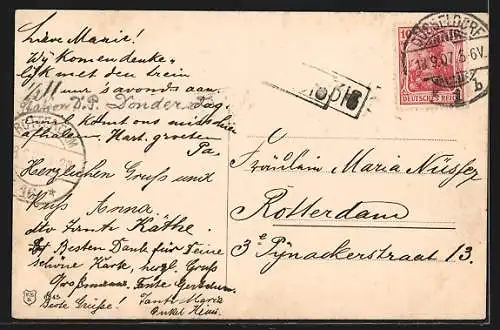 Lieve Marie!
Wij komen denke-
lijk met den trein
11 uur 's avonds aan
Station D.P. Donderdag.
komt ons misschien
afhalen. Hart. groeten
Pa.
Herzlichen Gruss und
Kuss Anna
dto Tante Käthe.
Besten Dank für Deine
schöne Karte, herzl. Gruss
Grossmama. Tante Gertrud
Beste Grüsse! Tante Maria
Onkel Heinr.
DÜSSELDORF
17.9.07. 5-6V.
b
10
DEUTSCHES REICH
Fräulein Maria Nüsser
Rotterdam
3e Pijnackerstraat 13.